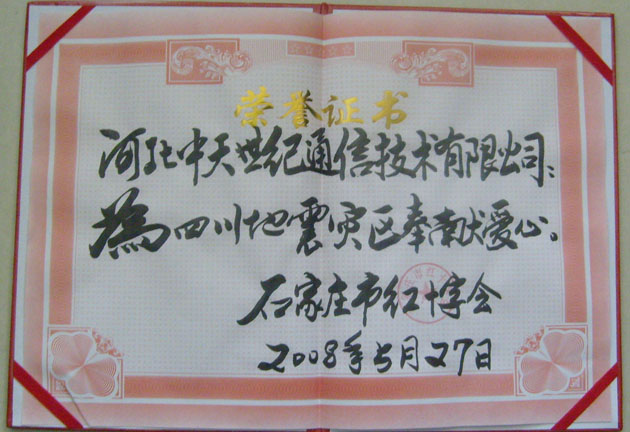 荣誉证书
河北中天世纪通信技术有限公司:
為四川地震灾区奉献爱心。
石家庄市红十字会
2008年5月27日